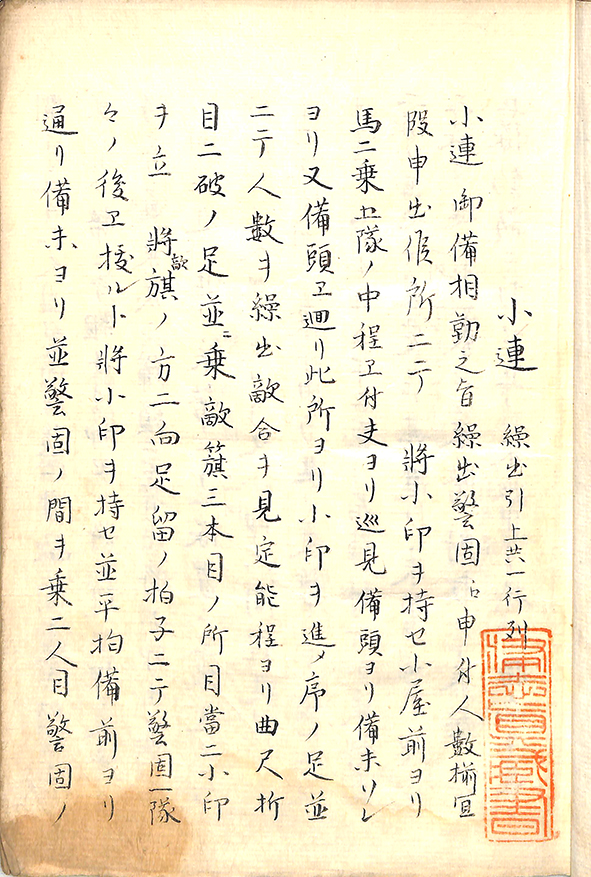 小連 繰出引上共一行列
小連御備相勤之旨繰出警固ゟ申付人数揃宜
段申出候所ニテ 將小印ヲ持セ小屋前ヨリ
馬ニ乗セ隊ノ中程エ付夫ヨリ巡見備頭ヨリ備末
ヨリ又備頭エ廻リ此所ヨリ小印ヲ進メ序ノ足並
ニテ人数ヲ繰出敵合ヲ見定能程ヨリ曲尺折
目ニ破ノ足並ニ乗敵籏三本目ノ所目當ニ小印
ヲ立 將敵旗ノ方ニ向足留ノ拍子ニテ警固一隊
々ノ後エ接ルト將小印ヲ持セ並平拍備前ヨリ
通リ備末ヨリ並警固ノ間ヲ乗二人目警固ノ